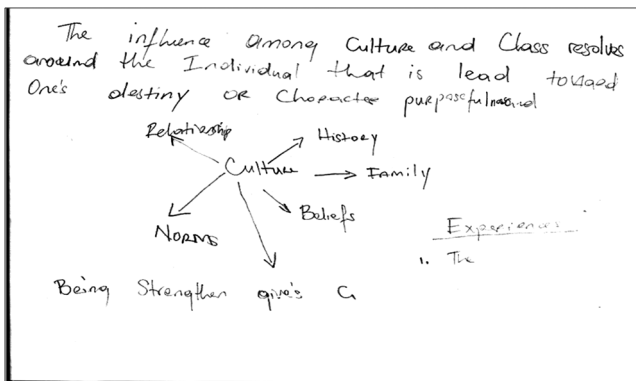 The influence among Culture and Class resolves
around the Individual that is lead toward
One's destiny or Character
Relationship
History
Culture
Family
Beliefs
Norms
Experiences
1. The
Being Strengthen give's G